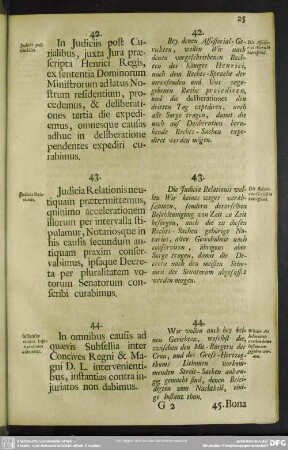 25
42.
Judicia post
curialia.
In Judiciis post Cu-
rialibus, juxta Jura præ-
scripta Henrici Regis,
ex sententia Dominorum
Ministrorum ad latus No-
strum residentium, pro-
cedemus, & deliberati-
ones tertia die expedi-
emus, omnesque causas
adhuc in deliberatione
pendentes expediri cu-
rabimus.
43.
Judicia Rela-
tionis.
Judicia Relationis neu-
tiquam prætermittemus,
quinimo accelerationem
illorum per intervalla sti-
pulamur, Notariosque in
his causis secundum an-
tiquam praxim conser-
vabimus, ipsaque Decre-
ta per pluralitatem vo-
torum Senatorum con-
scribi curabimus.
44.
In omnibus causis ad
quævis Subsellia inter
Concives Regni & Ma-
gni D. L. intervenienti-
bus, instantias contra in-
juriatos non dabimus.
42.
Bey denen Assessorial-Ge-
richten, wollen Wir nach
denen vorgeschriebenen Rech-
ten des Königes Henrici,
nach dem Rechts-Spruche der
anwesenden und Uns zuge-
gebenen Räthe procediren,
und die deliberationes den
dritten Tag expediren, auch
alle Sorge tragen, damit die
noch auf Deliberation beru-
hende Rechts-Sachen expe-
diret werden mögen.
43.
Die Judicia Relationis wol-
len Wir keines weges verab-
säumen, sondern derselben
Beschleunigung von Zeit zu Zeit
besorgen, auch die zu diesen
Rechts-Sachen gehörige No-
tarios, alter Gewohnheit nach
conserviren, übrigens aber
Sorge tragen, damit die De-
creta nach den meisten Stim-
men der Senatorum abgefasst
werden mogen.
44.
Wir wollen auch bey kei-
nen Gerichten, woselbst die
zwischen den Mit-Bürgern der
Cron, und des Gross-Hertzog-
thums Lithauen vorkom-
menden Streit-Sachen anhän-
gig gemacht sind, denen Belei-
digten zum Nachtheil, eini-
ge Instanz thun.
G 2
45. Bona